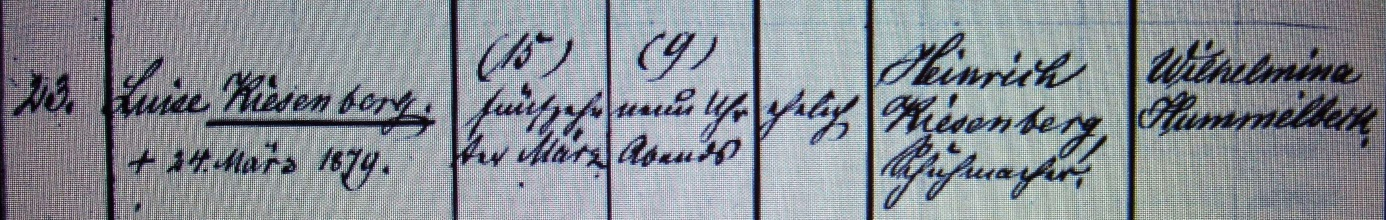 23.
Luise Riesenberg.
+ 24. März 1879.
(15)
fünfzehn
ter März
(9)
neun Uhr
Abends
ehelich
Heinrich
Riesenberg,
Schuhmacher,
Wilhelmina
Hummelbeck,